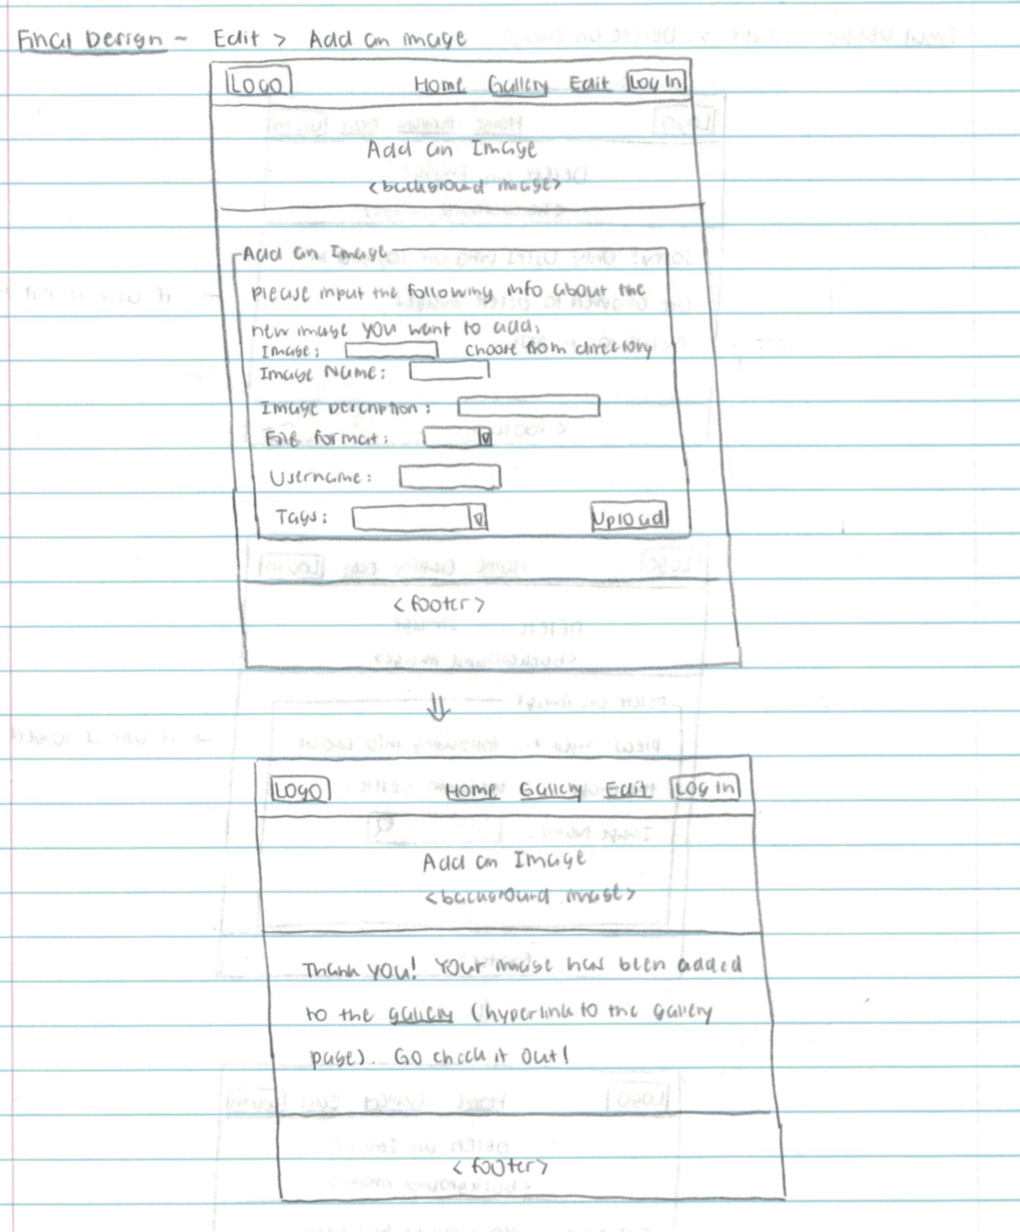 Final Design - Edit > Add an image
Logo Home Gallery Edit Log In
Add an Image
<background image>
Add an Image
Please input the following info about the
new image you want to add:
Image: choose from directory
Image Name:
Image Description:
File Format:
Username:
Tags: Upload
<footer>
Logo Home Gallery Edit Log In
Add an Image
<background image>
Thank you! Your image has been added
to the gallery (hyperlink to the gallery
page). Go check it out!
<footer>